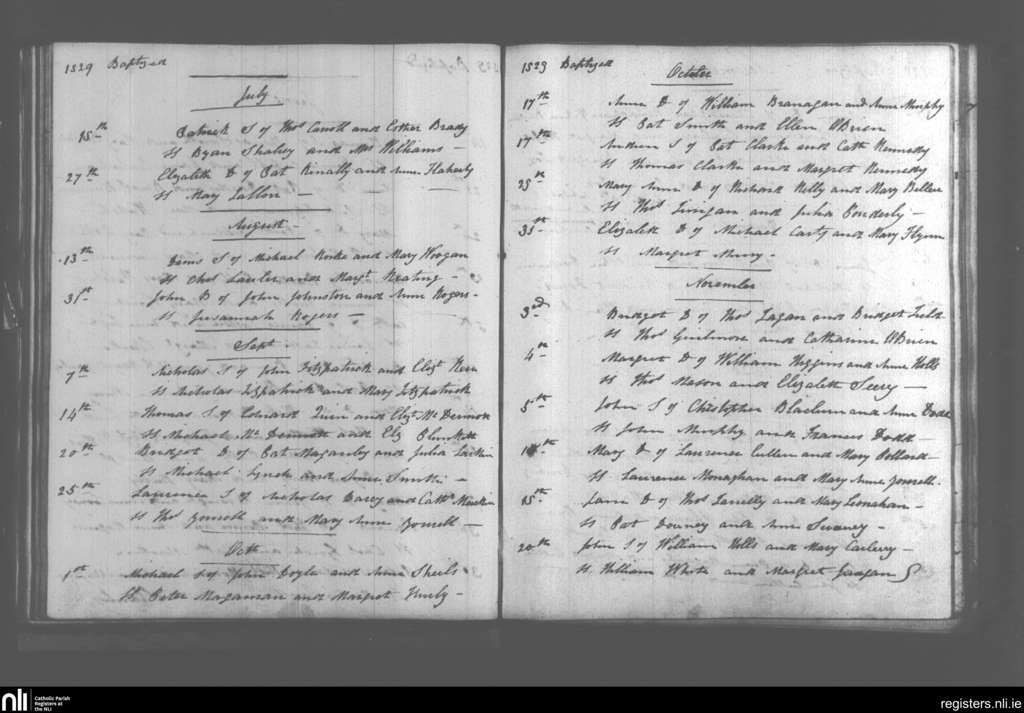 1829 Baptized
July
15th Patrick S of Thos Carroll and Esther Brady
St Bryan Shaley and Mrs Williams -
27th Elizabeth D of Pat Kinally and Anne Flaherty
St Mary Lallon -
August -
13th Denis S of Michael Rorke and Mary Woogan
St Chas Lawler and Margt Keating -
31st John B of John Johnston and Anne Rogers -
St Susannah Rogers -
Sept.
7th Nicholas S of John Fitzpatrick and Elizt Kern
St Nicholas Fitzpatrick and Mary Fitzpatrick
14th Thomas S of Edward Quin and Elizt Mc Dermott
St Michael Mc Dermott and Eliz Plunkett
20th Bridget D of Pat Magauly and Julia Larkin
St Michael Lynch and Anne Smith -
25th Laurence S of Nicholas Darcy and Cathe
St Thos Yourell and Mary Anne Yourell -
Octr
1st Michael S of John Doyle and Anne Sheils
St Peter and Margret Hurly -
1829 Baptized
October
17th Anne D of William Branagan and Anne Murphy
St Pat Smith and Ellen OBrien
17th Andrew S of Pat Clarke and Cath Kennedy
St Thomas Clarke and Margret Kennedy
25th Mary Anne D of Richard Kelly and Mary Bellew
St Thos Finigan and Julia Ponderly -
31st Elizabeth D of Michael Carty and Mary Flynn
St Margret -
November
3rd Bridget D of Thos Lagan and Bridget Field
St Thos and Catharine OBrien
4th Margret D of William Higgins and Anne Holls
St Thos Mason and Elizabeth Seery -
5th John S of Christopher Blackurn and Anne Dodd
St John Murphy and Frances Dodd -
Mary D of Laurence Cullen and Mary Pollard -
St Laurence Monaghan and Mary Anne Yourell.
15th Jane D of Thos Lanelly and Mary Lenahan -
St Pat Downey and Anne Sweeney -
20th John S of William Holls and Mary Carberry -
St William White and Margret
nli
Catholic Parish
Registers at
the NLI
registers.nli.ie